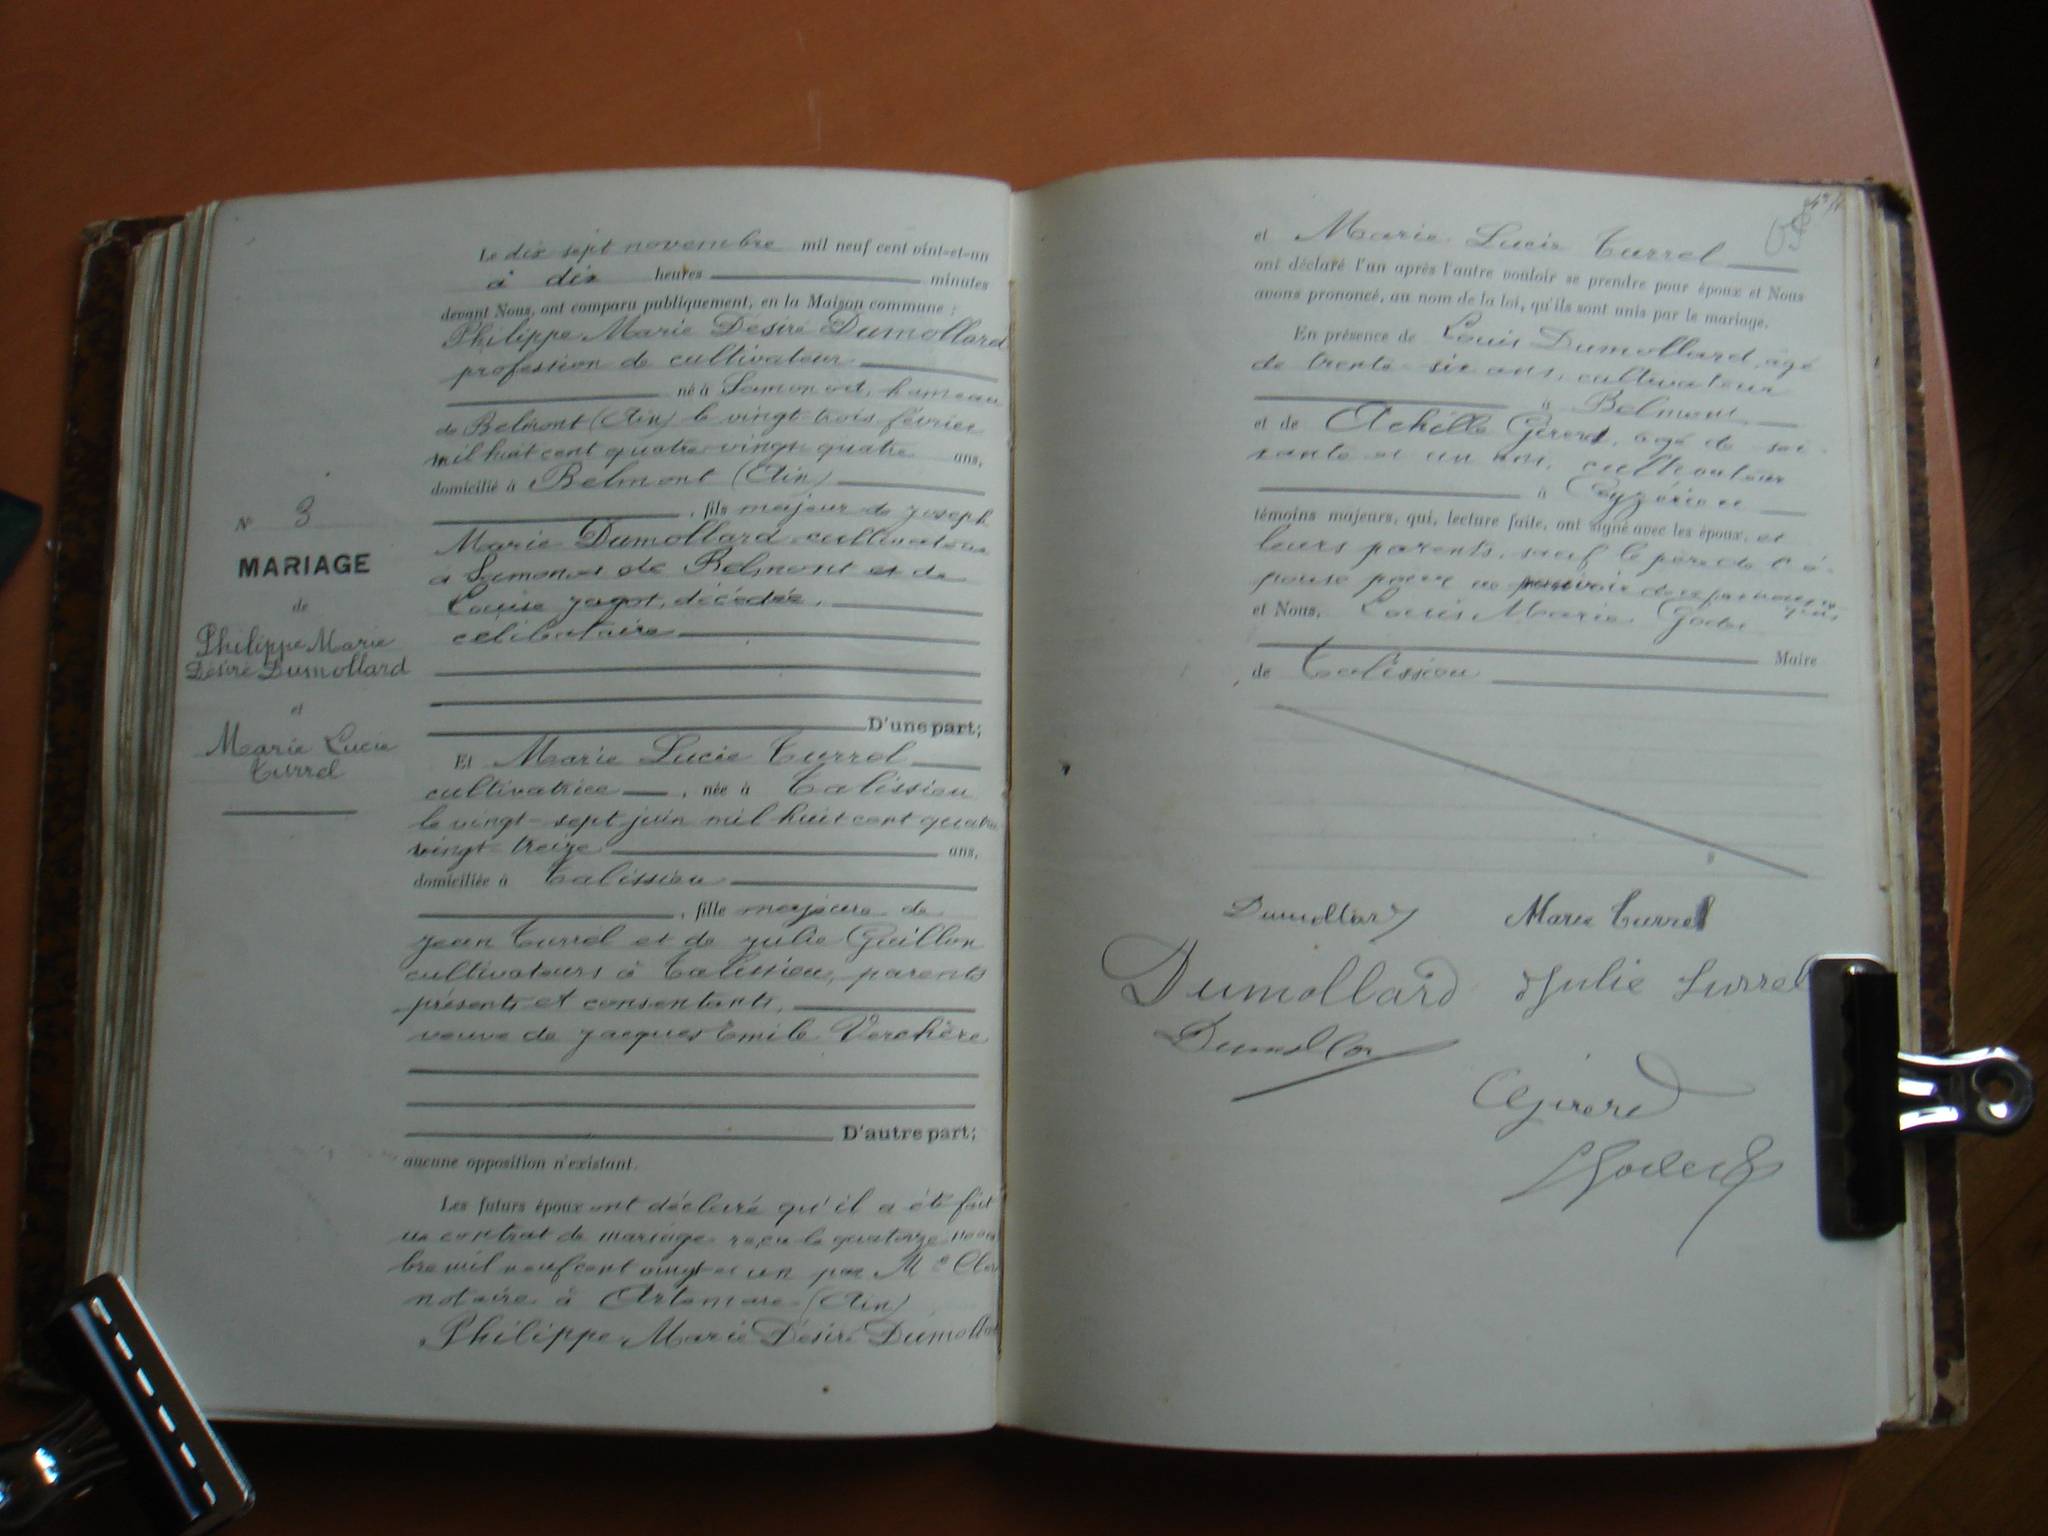 Le dix sept novembre mil neuf cent vint-et-un
à dix heures minutes
devant Nous, ont comparu publiquement, en la Maison commune :
Philippe Marie Désiré Dumollard
profession de cultivateur
né à Samonod, hameau
de Belmont (Ain) le vingt trois février
mil huit cent quatre vingt quatre ans,
domicilié à Belmont (Ain)
, fils majeur de Joseph
Marie Dumollard cultivateur
à Samonod de Belmont et de
Louise Jagot, décédée,
célibataire
D'une part;
Et Marie Lucie Turrel
cultivatrice , née à Talissieu
le vingt-sept juin mil huit cent quatre
vingt treize ans,
domiciliée à Talissieu
, fille majeure de
Jean Turrel et de Julie Guillon
cultivateurs à Talissieu, parents
présents et consentants,
veuve de Jacques Emile Verchère
D'autre part;
aucune opposition n'existant.
Les futurs époux ont déclaré qu'il a été fait
un contrat de mariage reçu le quatorze novem
bre mil neuf cent vingt et un par Me
notaire à Artemare (Ain)
Philippe Marie Désiré Dumollard
N° 3
MARIAGE
de
Philippe Marie
Désiré Dumollard
et
Marie Lucie
Turrel
et Marie Lucie Turrel
ont déclaré l'un après l'autre vouloir se prendre pour époux et Nous
avons prononcé, au nom de la loi, qu'ils sont unis par le mariage.
En présence de Louis Dumollard, âgé
de trente-six ans, cultivateur
à Belmont
et de Achille Girerd, âgé de soi-
xante et un ans, cultivateur
à Ceyzérieu
témoins majeurs, qui, lecture faite, ont signé avec les époux, et
leurs parents, sauf le père de l'é-
pouse pour ne
et Nous, Louis Marie Godet
Maire
de Talissieu
Dumollard Marie Turrel
Dumollard Julie Turrel
Dumollar
Girerd